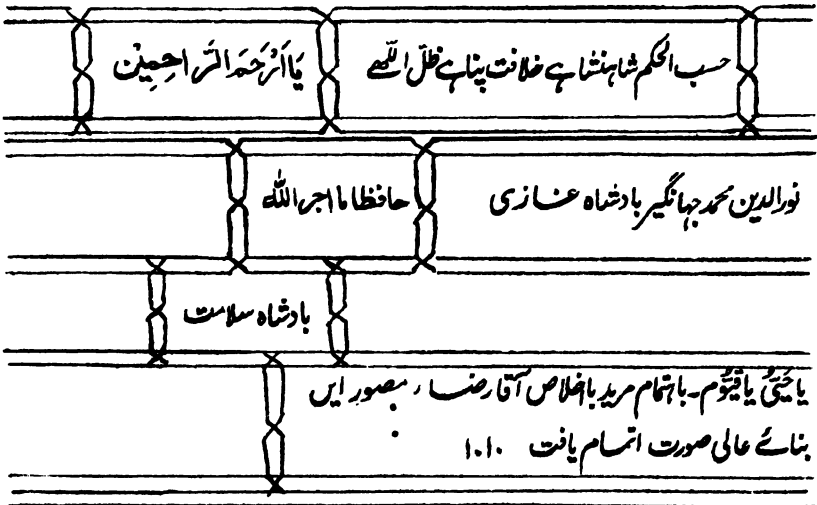 حسب الحکم شاہنشاہے خلافت پناہے ظل اللّٰھے یَا اَرْحَمَ الرَّاحِمِیْن
نورالدین محمد جہانگیر بادشاہ غازی حافظا ما اجر اللّٰہ
بادشاہ سلامت
یا حَیُّ یا قَیُّوم۔ باہتمام مرید بااخلاص آقا رضاء مصور ایں
بنائے عالی صورت اتمام یافت ۱۰۱۰